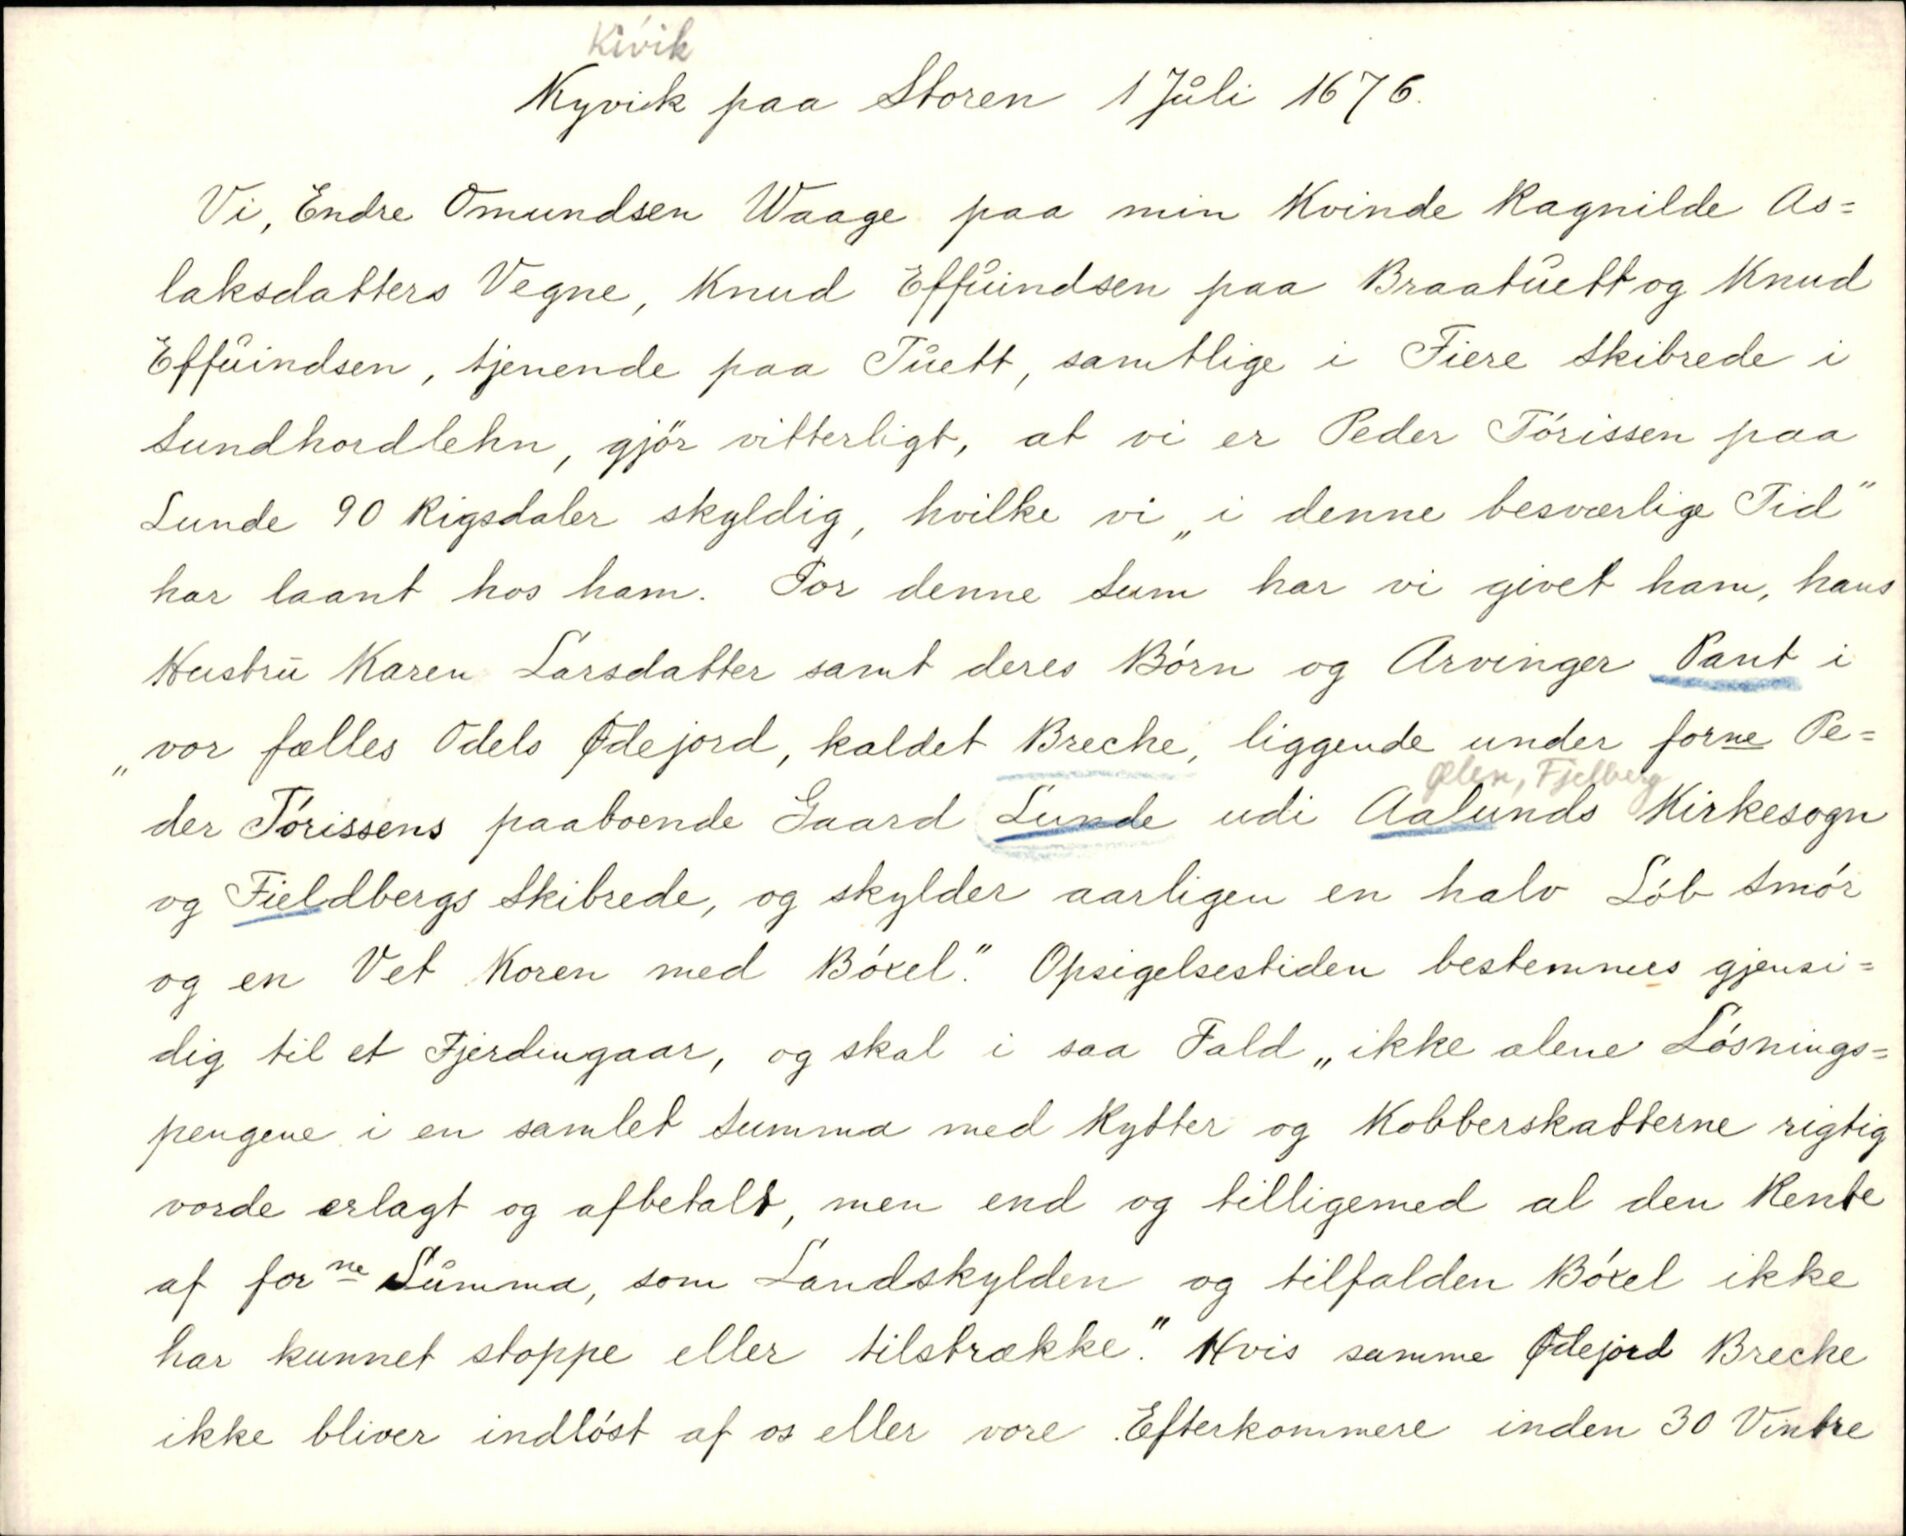 Kivik
Kyvick paa Storen 1 Jůli 1676.
Vi, Endre Omundsen Waage paa min Kvinde Ragnilde As=
laksdatters Vegne, Knud Effůindsen paa Braatůett og Knud
Effůindsen, tjenende paa Tůett, samtlige i Fiere Skibrede i
Sundhordlehn, gjör vitterligt, at vi er Peder Tórissen paa
Lunde 90 Rigsdaler skyldig, hvilke vi „i denne besværlige Tid"
har laant hos ham. For denne Sum har vi givet ham, hans
Hustrů Karen Larsdatter samt deres Börn og Arvinger Pant i
„vor fælles Odels Ødejord, kaldet Breche, liggende under forne Pe=
Ølen, Fjelberg
der Tórissens paaboende Gaard Lunde udi Aalunds Kirkesogn
og Fieldbergs Skibrede, og skylder aarligen en halv Lób Smór
og en Vet Koren med Bóxel." Opsigelsestiden bestemmes gjensi=
dig til et Fjerdingaar, og skal i saa Fald „ikke alene Lósnings=
pengene i en samlet Summa med Rytter og Kobberskatterne rigtig
vorde erlagt og afbetalt, men end og tilligemed al den Rente
af forne Sůmma, som Landskylden og tilfalden Bóxel ikke
har kunnet stoppe eller tilstrække." Hvis samme Ødejord Breche
ikke bliver indlóst af os eller vore Efterkommere inden 30 Vintre